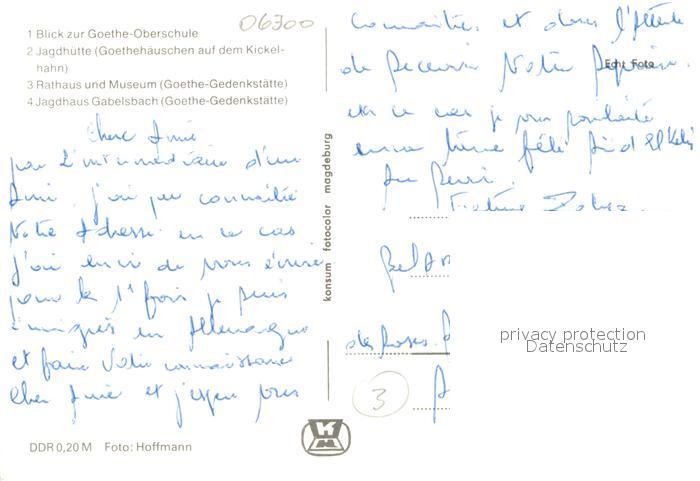 06300
1 Blick zur Goethe-Oberschule
2 Jagdhütte (Goethehäuschen auf dem Kickel-
hahn)
3 Rathaus und Museum (Goethe-Gedenkstätte)
4 Jagdhaus Gabelsbach (Goethe-Gedenkstätte)
cher Amie
par l'intermédiaire d'un
Ami j'ai pu connaitre
Votre Adresse en ce cas
j'ai envie de vous écrire
pour la 1° fois je suis
émigrés en Allemagne
et faire Votre connaissance
Cher Amie et j'espère vous
DDR 0,20 M Foto: Hoffmann
konsum fotocolor magdeburg
connaitre et dans l'attente
de recevoir Votre
Echt Foto
en ce cas je vous souhaite
une bonne fête
des Roses
3
privacy protection
Datenschutz